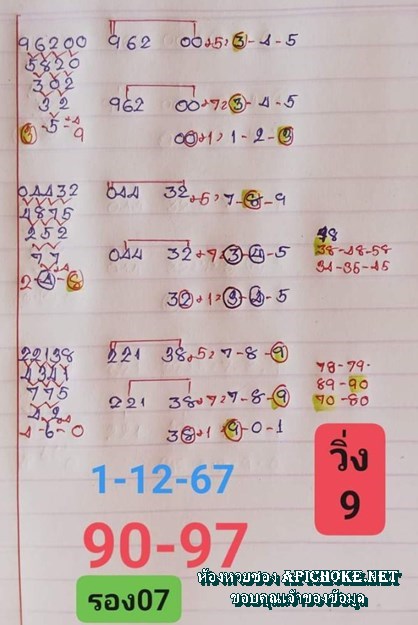 96200 962 00+5, 3-4-5
5820
302 962 00+7, 3-4-5
32
3-5-9 00+1, 1-2-3
04432 044 32+5, 7-8-9
4875
252 044 32+7, 3-4-5
77
2-4-8 32+1, 3-4-5
48
38-48-58
34-35-45
22138 221 38+5, 7-8-9
4341
775 221 38+7, 7-8-9
42
4-6-0 38+1 9-0-1
78-79-
89-90
70-80
วิ่ง
9
1-12-67
90-97
รอง07
ห้องหวยซอง APICHOKE.NET
ขอบคุณเจ้าของข้อมูล